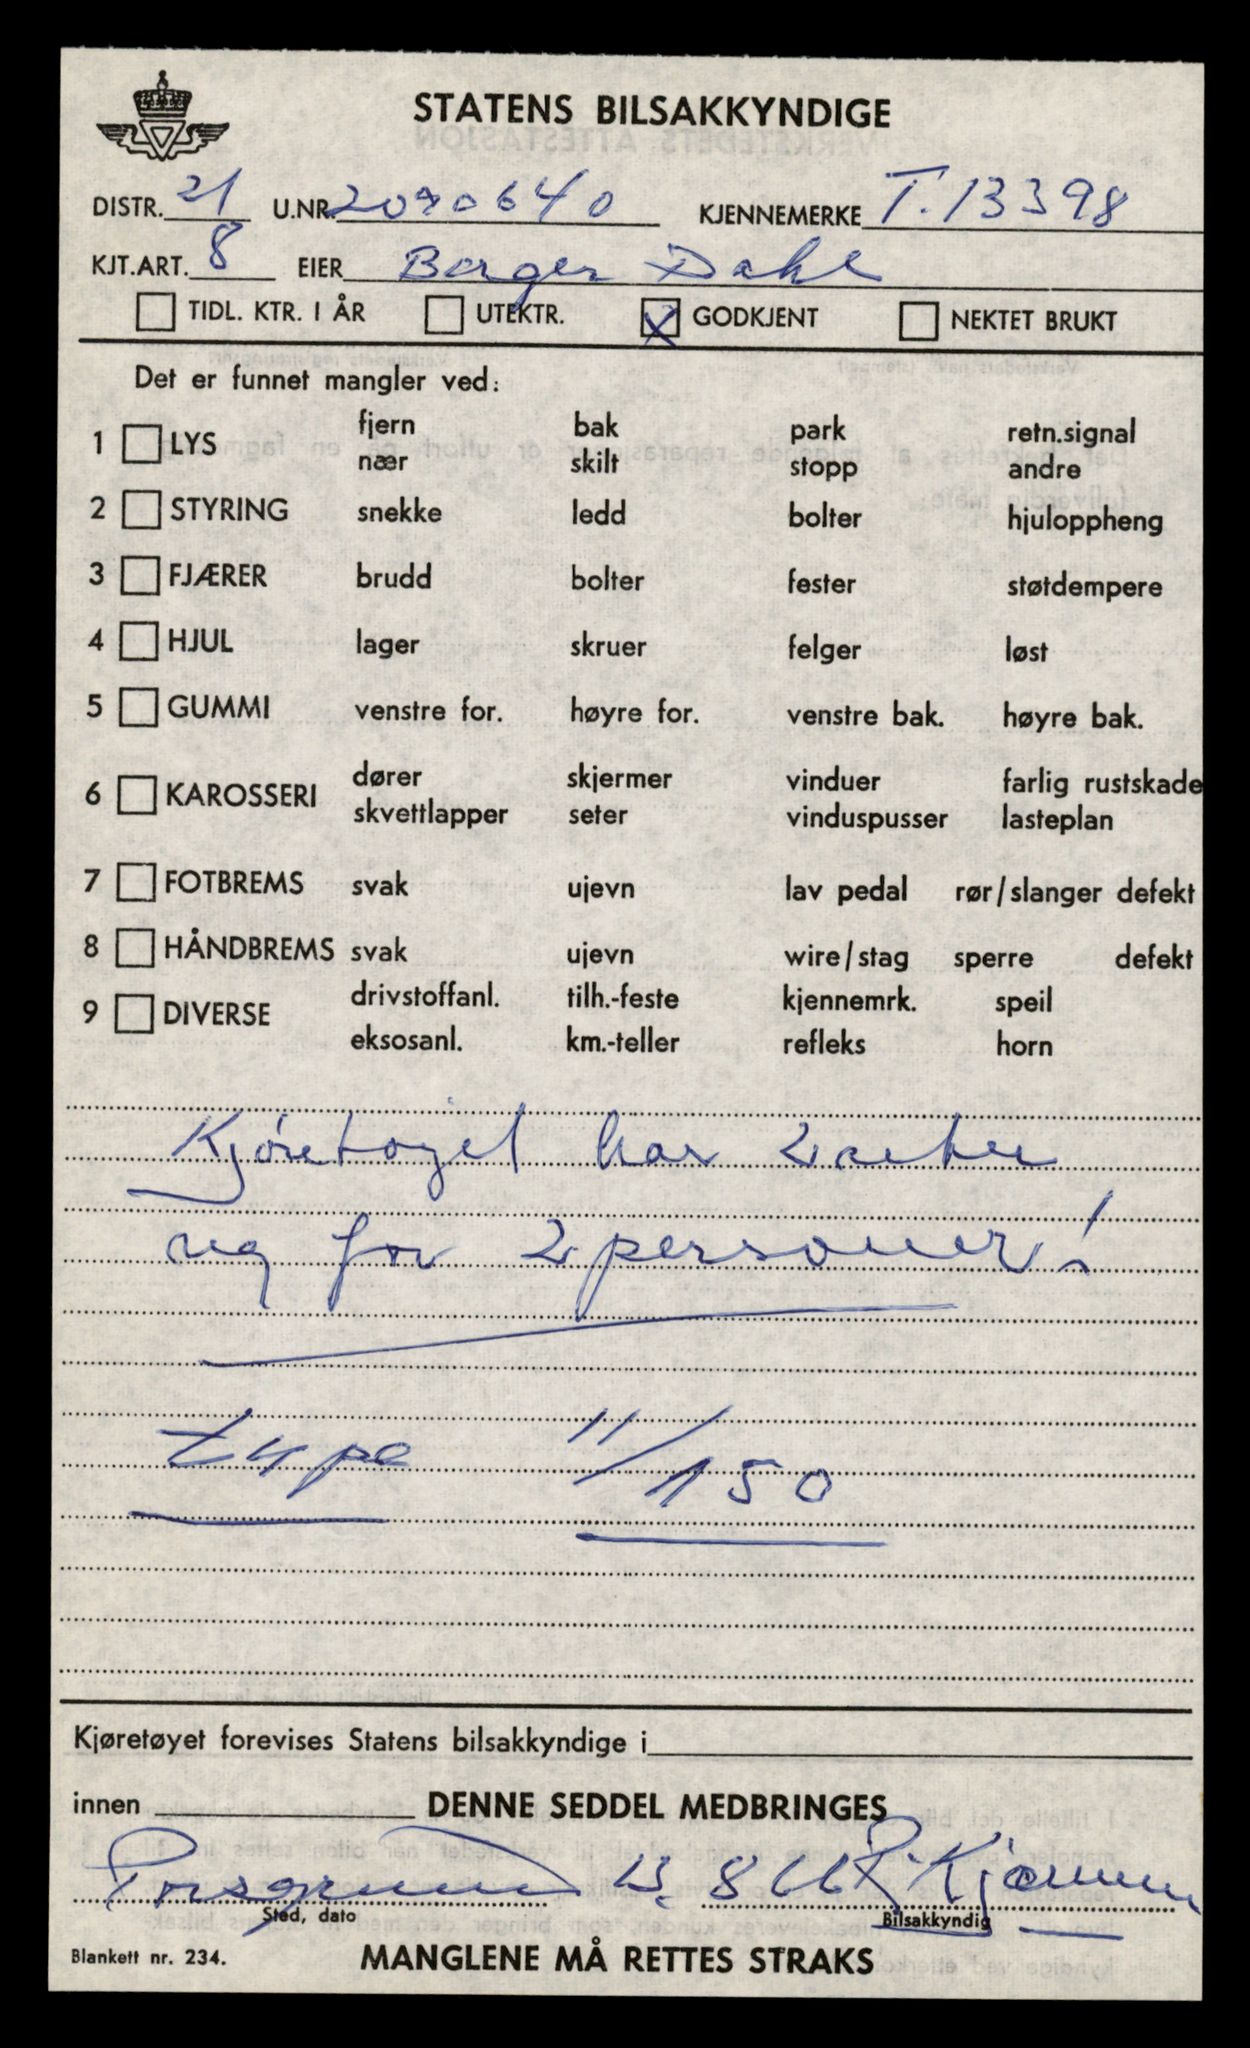 STATENS BILSAKKYNDIGE
DISTR. 21 U.NR 2070640 KJENNEMERKE T.13398
KJT.ART. 8 EIER Borger Dahl
TIDL. KTR. I ÅR UTEKTR. X GODKJENT NEKTET BRUKT
Det er funnet mangler ved:
1 LYS fjern bak park retn.signal
nær skilt stopp andre
2 STYRING snekke ledd bolter hjuloppheng
3 FJÆRER brudd bolter fester støtdempere
4 HJUL lager skruer felger løst
5 GUMMI venstre for. høyre for. venstre bak. høyre bak.
6 KAROSSERI dører skjermer vinduer farlig rustskade
skvettlapper seter vinduspusser lasteplan
7 FOTBREMS svak ujevn lav pedal rør/slanger defekt
8 HÅNDBREMS svak ujevn wire/stag sperre defekt
9 DIVERSE drivstoffanl. tilh.-feste kjennemrk. speil
eksosanl. km.-teller refleks horn
Kjøretøyet har 2 seter
reg for 2 personer!
type 11/150
Kjøretøyet forevises Statens bilsakkyndige i
innen DENNE SEDDEL MEDBRINGES
Porsgrunn 13.8 66 R. Kjærum
Sted, dato Bilsakkyndig
Blankett nr. 234. MANGLENE MÅ RETTES STRAKS